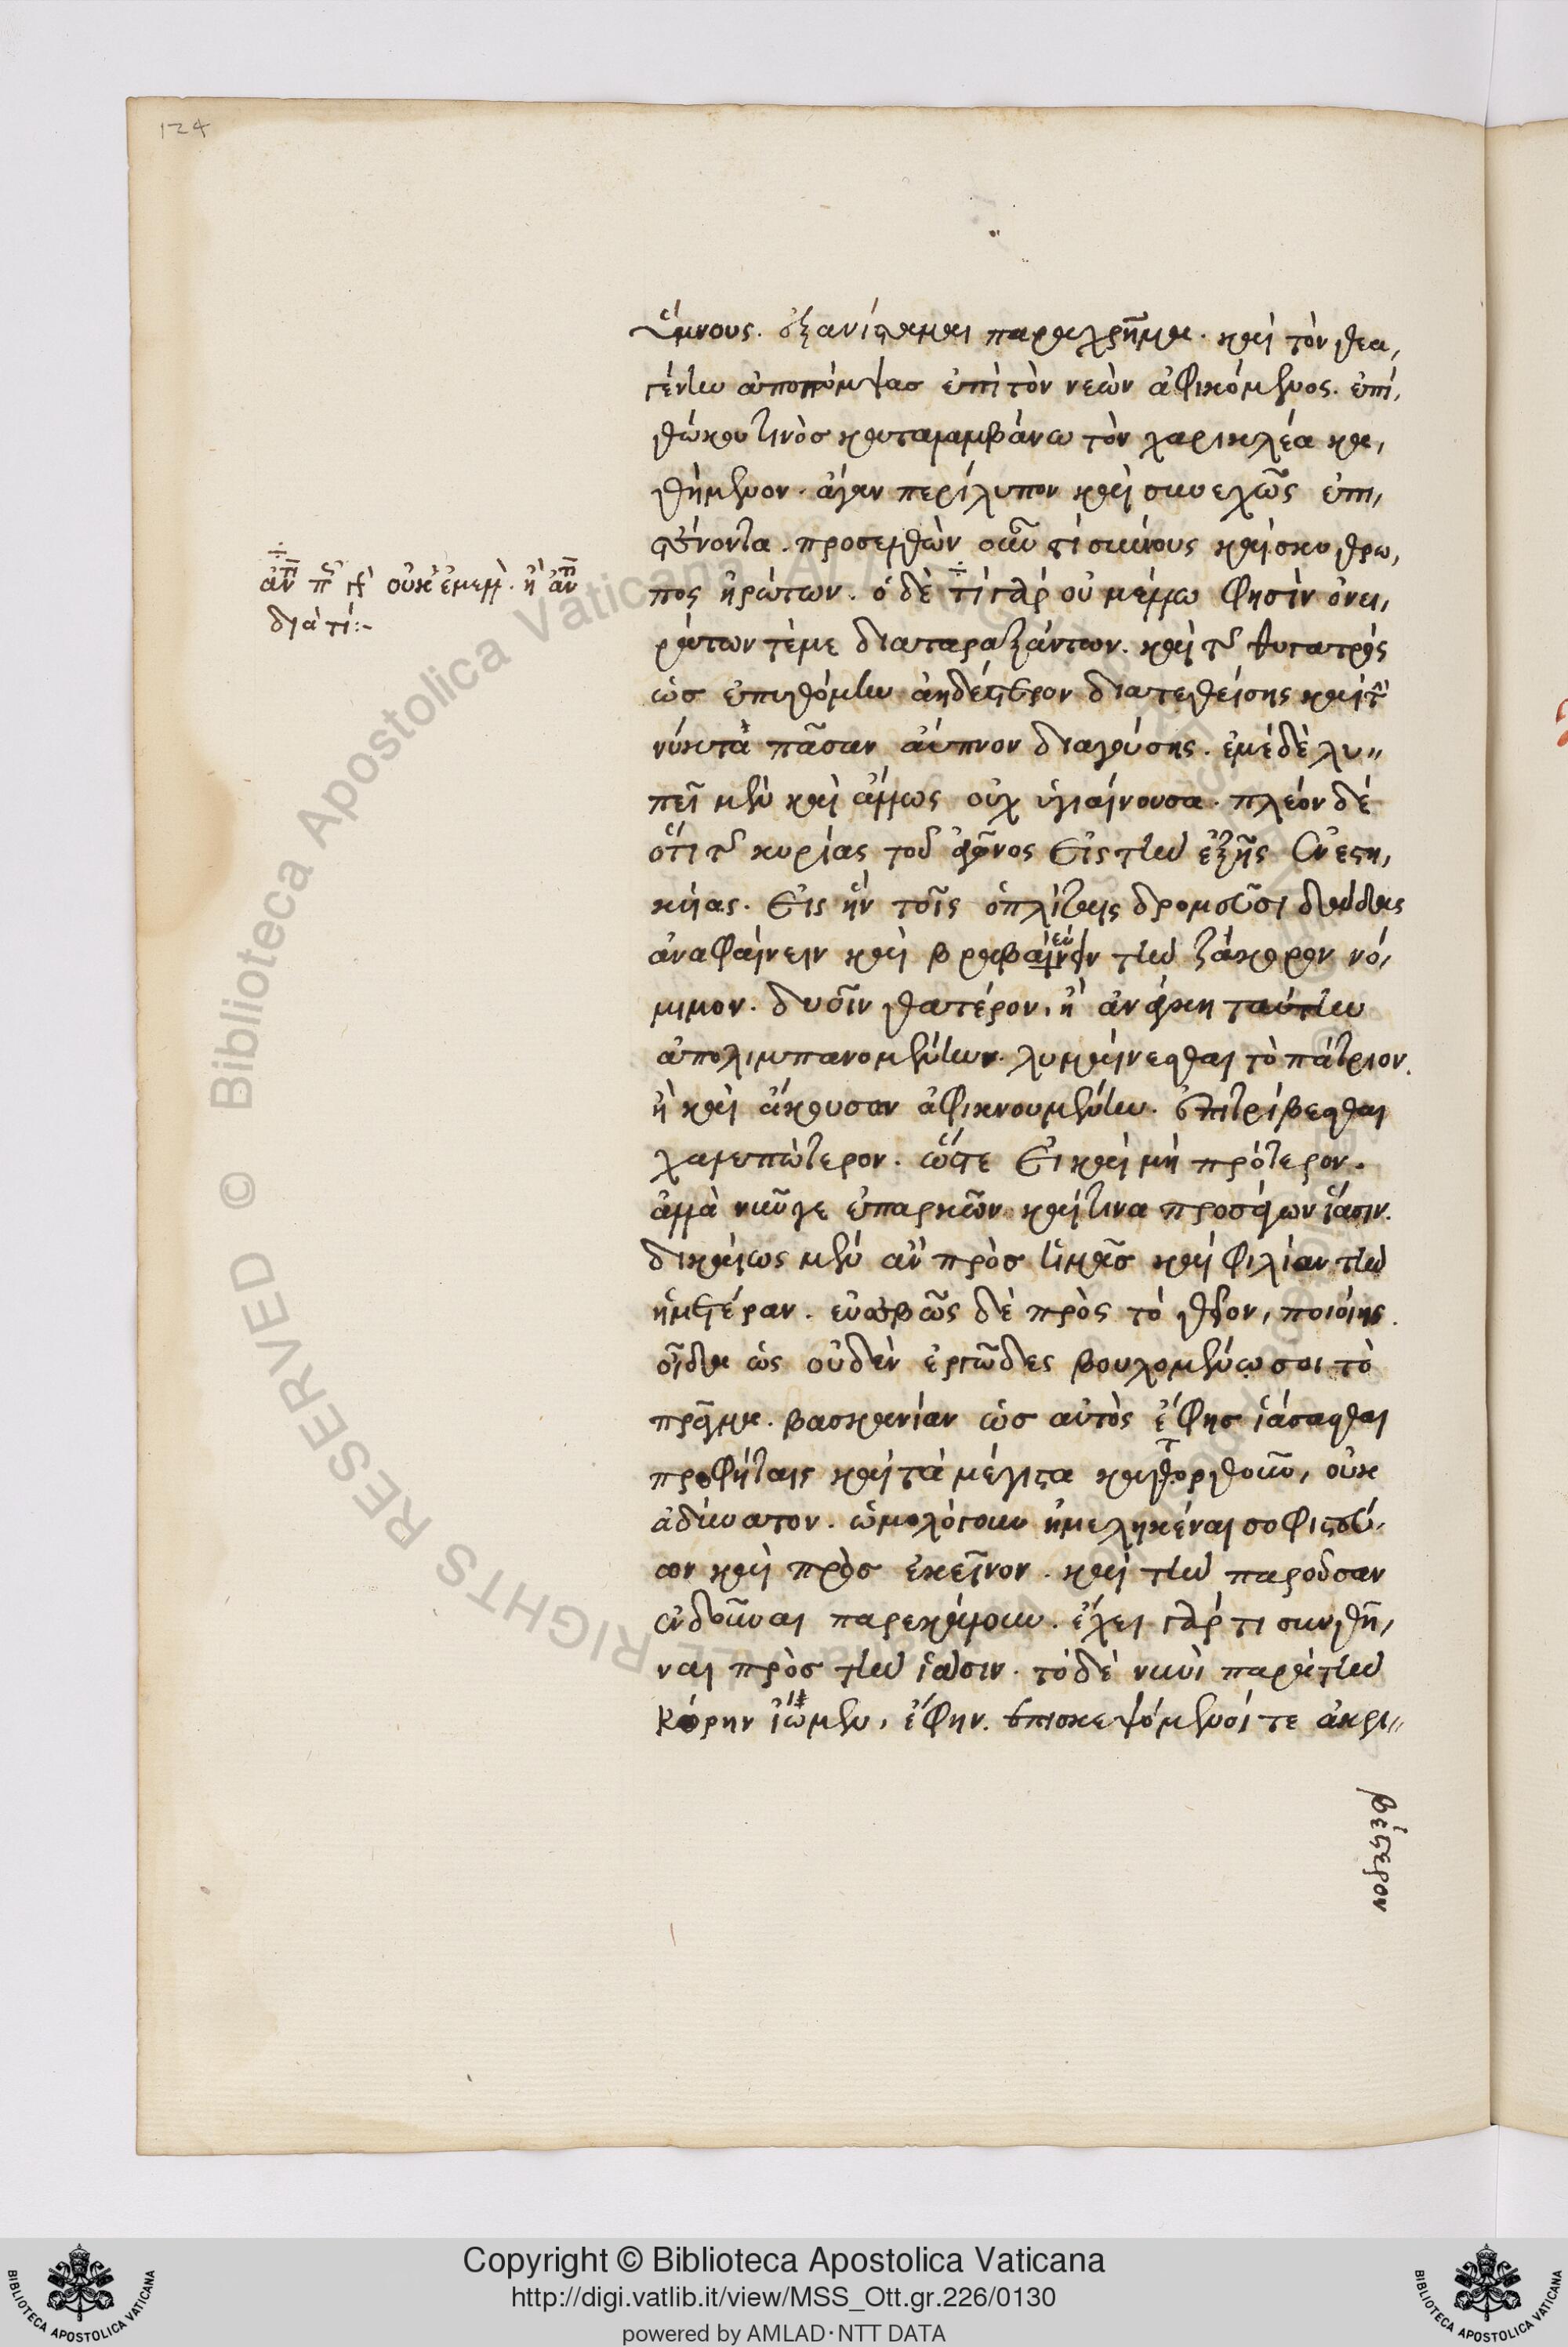 124
ὕμνους. ἐξανίσταμαι παραχρῆμα. καὶ τὸν θεα,
γένην ἀποπέμψας ἐπὶ τὸν νεὼν ἀφικόμενος. ἐπὶ,
θώκου τινὸς καταλαμβάνω τὸν χαρικλέα κα,
θήμενον. ἄγαν περίλυπον καὶ συνεχῶς ἐπι,
στένοντα. προσελθὼν οὖν τί σύννους καὶ σκυθρω,
πος ἠρώτων. ὁ δὲ τί γὰρ οὐ μέλλω φησὶν ὀνει,
ράτων τέ με διαταραξάντων. καὶ τῆς θυγατρὸς
ὡς ἐπυθόμην ἀηδέστερον διατεθείσης καὶ τὴν
νύκτα πᾶσαν ἄυπνον διαγούσης. ἐμὲ δὲ λυ"
πεῖ μὲν καὶ ἄλλως οὐχ ὑγιαίνουσα. πλέον δὲ
ὅτι τῆς κυρίας τοῦ ἀγῶνος εἰς τὴν ἑξῆς ἐνεστη,
κυίας. εἰς ἣν τοῖς ὁπλίταις δρομεῦσι δᾷδας
ἀναφαίνειν καὶ βραβεύειν τὴν ζάκορον νό,
μιμον. δυοῖν θατέρον, ἢ ἀνάγκη ταύτην
ἀπολιμπανομένην. λυμαίνεσθαι τὸ πάτριον.
ἢ καὶ ἄκουσαν ἀφικνουμένην. ἐπιτρίβεσθαι
χαλεπώτερον. ὥστε εἰ καὶ μὴ πρότερον.
ἀλλὰ νῦν γε ἐπαρκῶν καί τινα προσάγων ἴασιν.
δικαίως μὲν ἂν πρὸς ἡμᾶς καὶ φιλίαν τὴν
ἡμετέραν. εὐσεβῶς δὲ πρὸς τὸ θεῖον, ποιοίης.
οἶδα ὡς οὐδὲν ἐργῶδες βουλομένω σοι τὸ
πρᾶγμα. βασκανίαν ὡς αὐτὸς ἔφης ἰάσασθαι
προφήταις καὶ τὰ μέγιστα κατορθοῦν, οὐκ
ἀδύνατον. ὡμολόγουν ἠμεληκέναι σοφιστεύ,
ων καὶ πρὸς ἐκεῖνον. καὶ τὴν παροῦσαν
ἐνδοῦναι παρεκάλουν. ἔχει γάρ τι συνθῆ,
ναι πρὸς τὴν ἴασιν. τὸ δὲ νυνὶ παρὰ τὴν
κόρην ἴωμεν, ἔφην. ἐπισκεψόμενοί τε ἀκρι"
βέστερον
διὰ τί:-
Copyright © Biblioteca Apostolica Vaticana
http://digi.vatlib.it/view/MSS_Ott.gr.226/0130
powered by AMLAD·NTT DATA
BIBLIOTECA APOSTOLICA VATICANA
BIBLIOTECA APOSTOLICA VATICANA
© Biblioteca Apostolica Vaticana ALL RIGHTS RESERVED